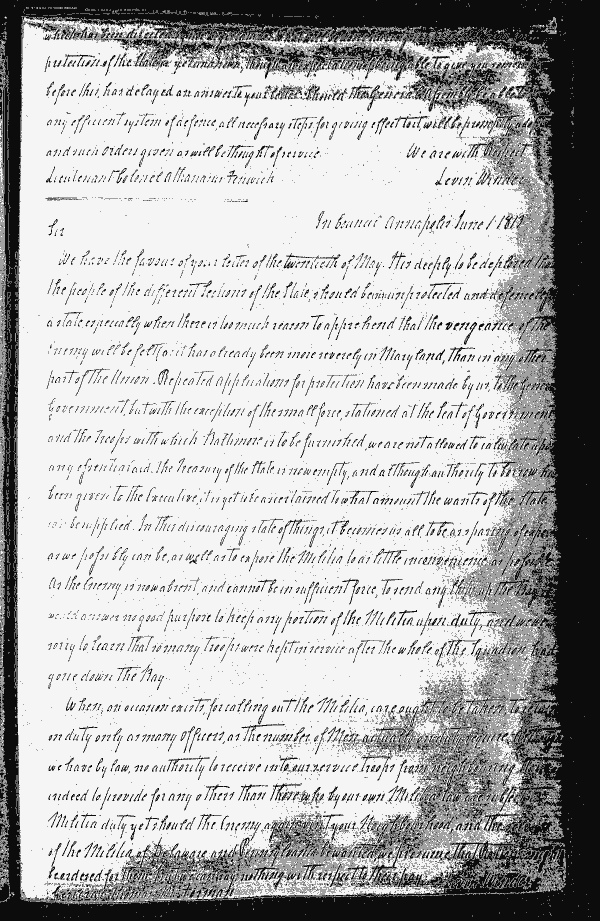 which has been directed
protection of the State as yet unknown, though
before this, has delayed an answer to your letter. Should the General Assembly be able to
any efficient system of defence, all necessary steps for giving effect to it will be promptly
and such orders given as will be thought of service. We are with Respect
Lieutenant Colonel Athanasius Fenwick Levin Winder
In Council Annapolis June 1 1813
Sir
We have the favour of your letter of the twentieth of May. It is deeply to be deplored that
the people of the different Sections of the State, should be in unprotected and defenceless
a state especially when there is too much reason to apprehend that the vengeance of the
Enemy will be felt, as it has already been more severely in Maryland, than in any other
part of the Union. Repeated applications for protection have been made by us, to the General
Government, but with the exception of the small force, stationed at the Seat of Government
and the Troops with which Baltimore is to be furnished, we are not allowed to calculate upon
any essential aid. The Treasury of the State is now empty, and although authority to borrow has
been given to the Executive, it is yet to be ascertained to what amount the wants of the State,
can be supplied. In this discouraging state of things, it becomes us all, to be as sparing of expence
as we possibly can be, as well as to expose the Militia to as little inconvenience as possible
As the Enemy is now absent, and cannot be in sufficient force, to send any ships up the Bay, it
would answer no good purpose to keep any portion of the Militia upon duty, and we were
sorry to learn that so many troops were kept in service after the whole of the Squadron had
gone down the Bay
When, an occasion exists, for calling out the Militia, care ought to be taken, to
on duty only as many officers, as the number of Men actually
we have by law, no authority to receive into our service troops from neighbouring
indeed to provide for any others than those who by our own Militia Law are subject
Militia duty yet should the Enemy again visit your Neighbourhood, and the
of the Militia of Delaware and Pennsylvania be we presume that
be ordered for them nothing with respect to their pay.